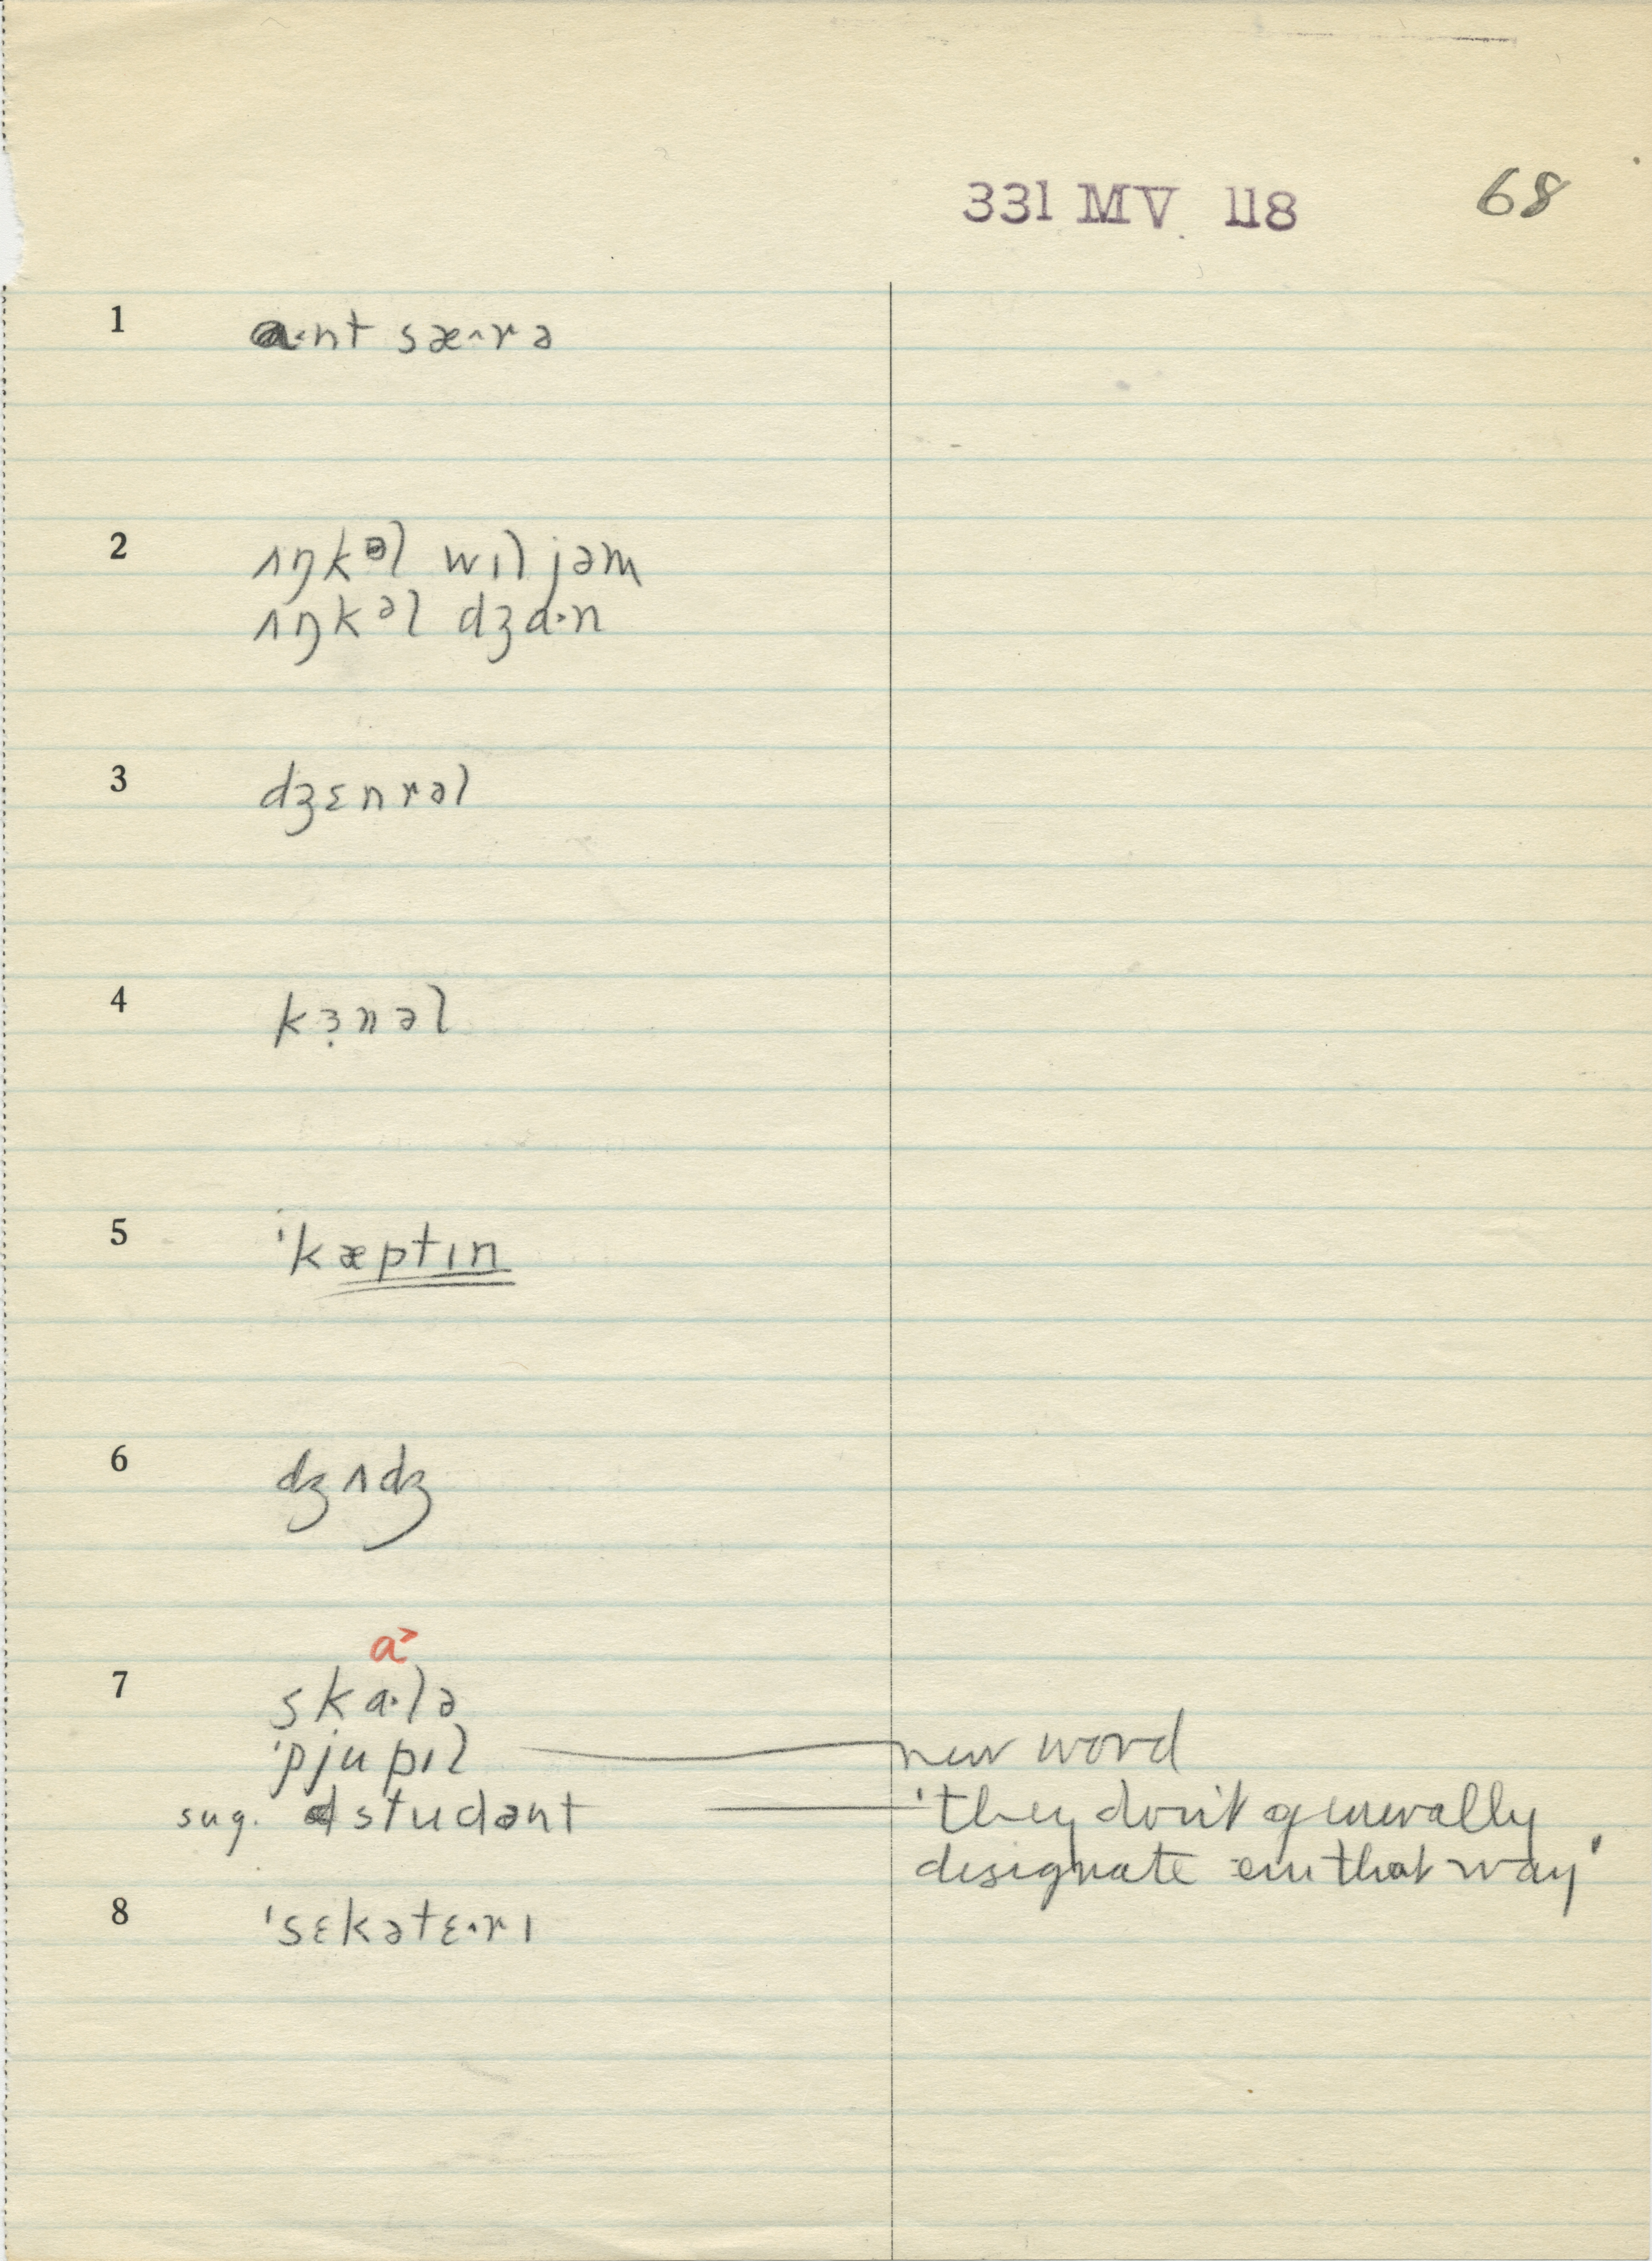 331 MV 118 68
1 a·nt sæ·rə
2 ʌŋkəl wɪljəm
ʌŋkəl dʒɑ·n
3 dʒɛnrəl
4 kɜ̣nəl
5 ˈkæptɪn
6 dʒʌdʒ
a˃
7 ska·lə
ˈpjupɪl new word
sug. studənt 'they don't generally
designate em that way'
8 ˈsɛkətɛ·rɪ